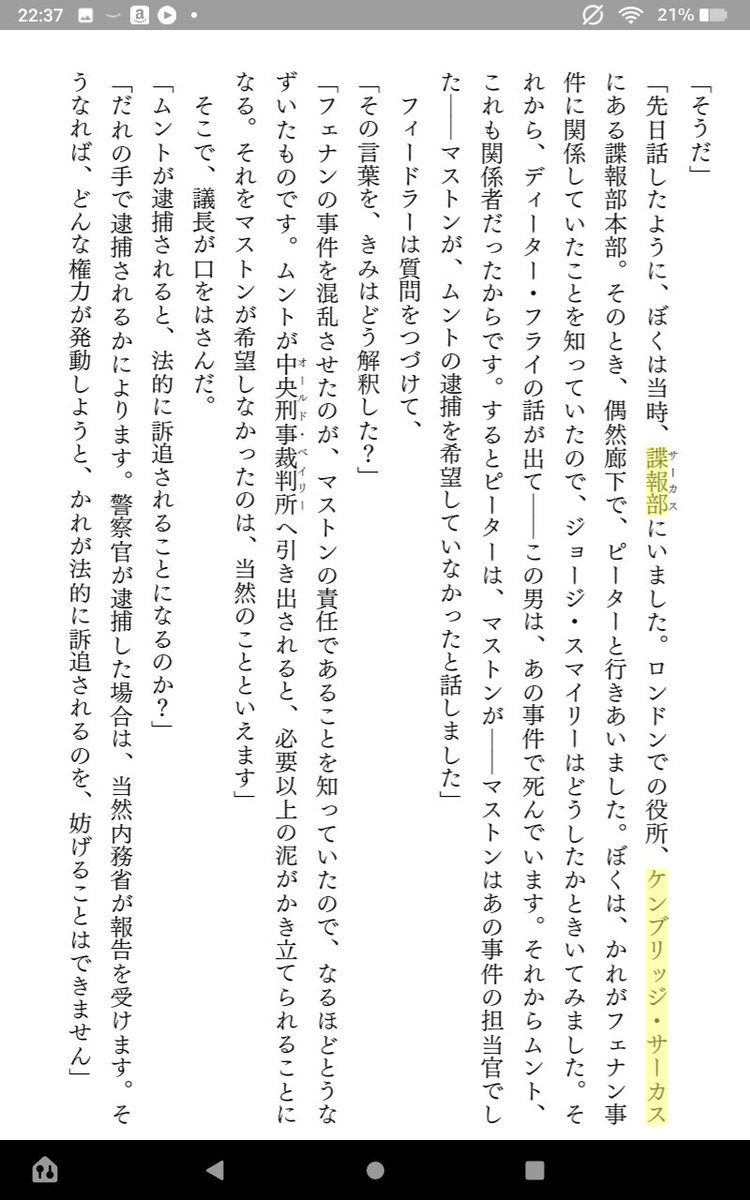 22:37
21%
「そうだ」
「先日話したように、ぼくは当時、諜報部にいました。ロンドンでの役所、ケンブリッジ・サーカス
サーカス
にある諜報部本部。そのとき、偶然廊下で、ピーターと行きあいました。ぼくは、かれがフェナン事
件に関係していたことを知っていたので、ジョージ・スマイリーはどうしたかときいてみました。そ
れから、ディーター・フライの話が出て――この男は、あの事件で死んでいます。それからムント、
これも関係者だったからです。するとピーターは、マストンが――マストンはあの事件の担当官でし
た――マストンが、ムントの逮捕を希望していなかったと話しました」
フィードラーは質問をつづけて、
「その言葉を、きみはどう解釈した？」
「フェナンの事件を混乱させたのが、マストンの責任であることを知っていたので、なるほどとうな
ずいたものです。ムントが中央刑事裁判所へ引き出されると、必要以上の泥がかき立てられることに
オールド・ベイリー
なる。それをマストンが希望しなかったのは、当然のことといえます」
そこで、議長が口をはさんだ。
「ムントが逮捕されると、法的に訴追されることになるのか？」
「だれの手で逮捕されるかによります。警察官が逮捕した場合は、当然内務省が報告を受けます。そ
うなれば、どんな権力が発動しようと、かれが法的に訴追されるのを、妨げることはできません」